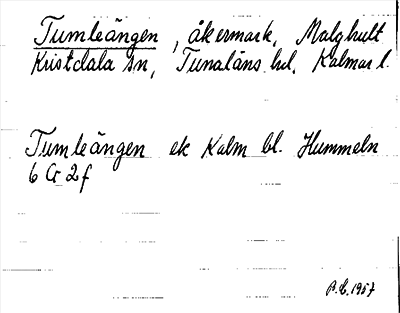 Tumleängen, åkermark, Malghult
Kristdala sn, Tunaläns hd. Kalmar l.
Tumleängen ek Kalm bl. Hummeln
6 G 2 f
1957